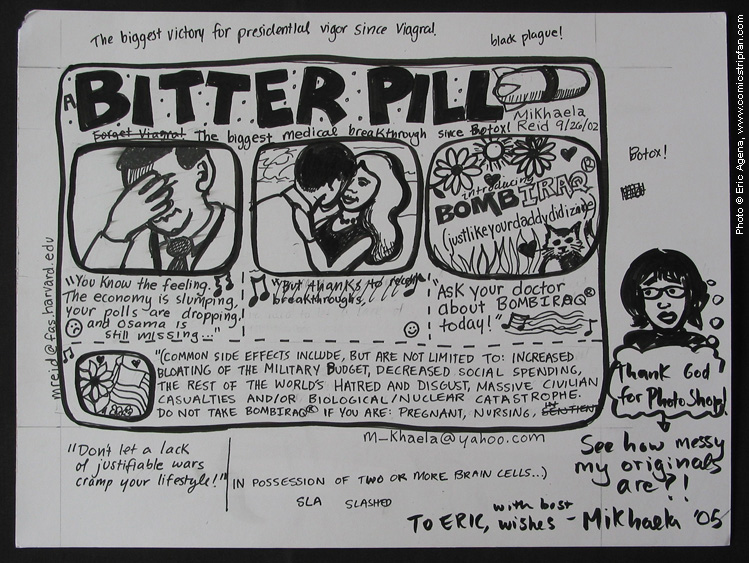 The biggest victory for presidential vigor since Viagra!
black plague!
A BITTER PILL
MiKhaela
Reid 9/26/02
Forget Viagra! The biggest medical breakthrough since Botox!
Botox!
introducing
BOMBIRAQ®
(justlikeyourdaddydidizate)
"You know the feeling.
The economy is slumping,
your polls are dropping,
and Osama is
still missing..."
"But thanks to recent
breakthroughs
"ASK your doctor
about BOMBIRAQ®
today!"
"(COMMON SIDE EFFECTS INCLUDE, BUT ARE NOT LIMITED TO: INCREASED
BLOATING OF THE MILITARY BUDGET, DECREASED SOCIAL SPENDING,
THE REST OF THE WORLD'S HATRED AND DISGUST, MASSIVE CIVILIAN
CASUALTIES AND/OR BIOLOGICAL/NUCLEAR CATASTROPHE.
DO NOT TAKE BOMBIRAQ® IF YOU ARE: PREGNANT, NURSING,
mreid@fas.harvard.edu
m_khaela@yahoo.com
"Don't let a lack
of justifiable wars
cramp your lifestyle!"
IN POSSESSION OF TWO OR MORE BRAIN CELLS...)
SLA SLASHED
Thank God
for PhotoShop!
See how messy
my originals
are?!
TO ERIC, with best wishes - MiKhaela '05
Photo © Eric Agena, www.comicstripfan.com